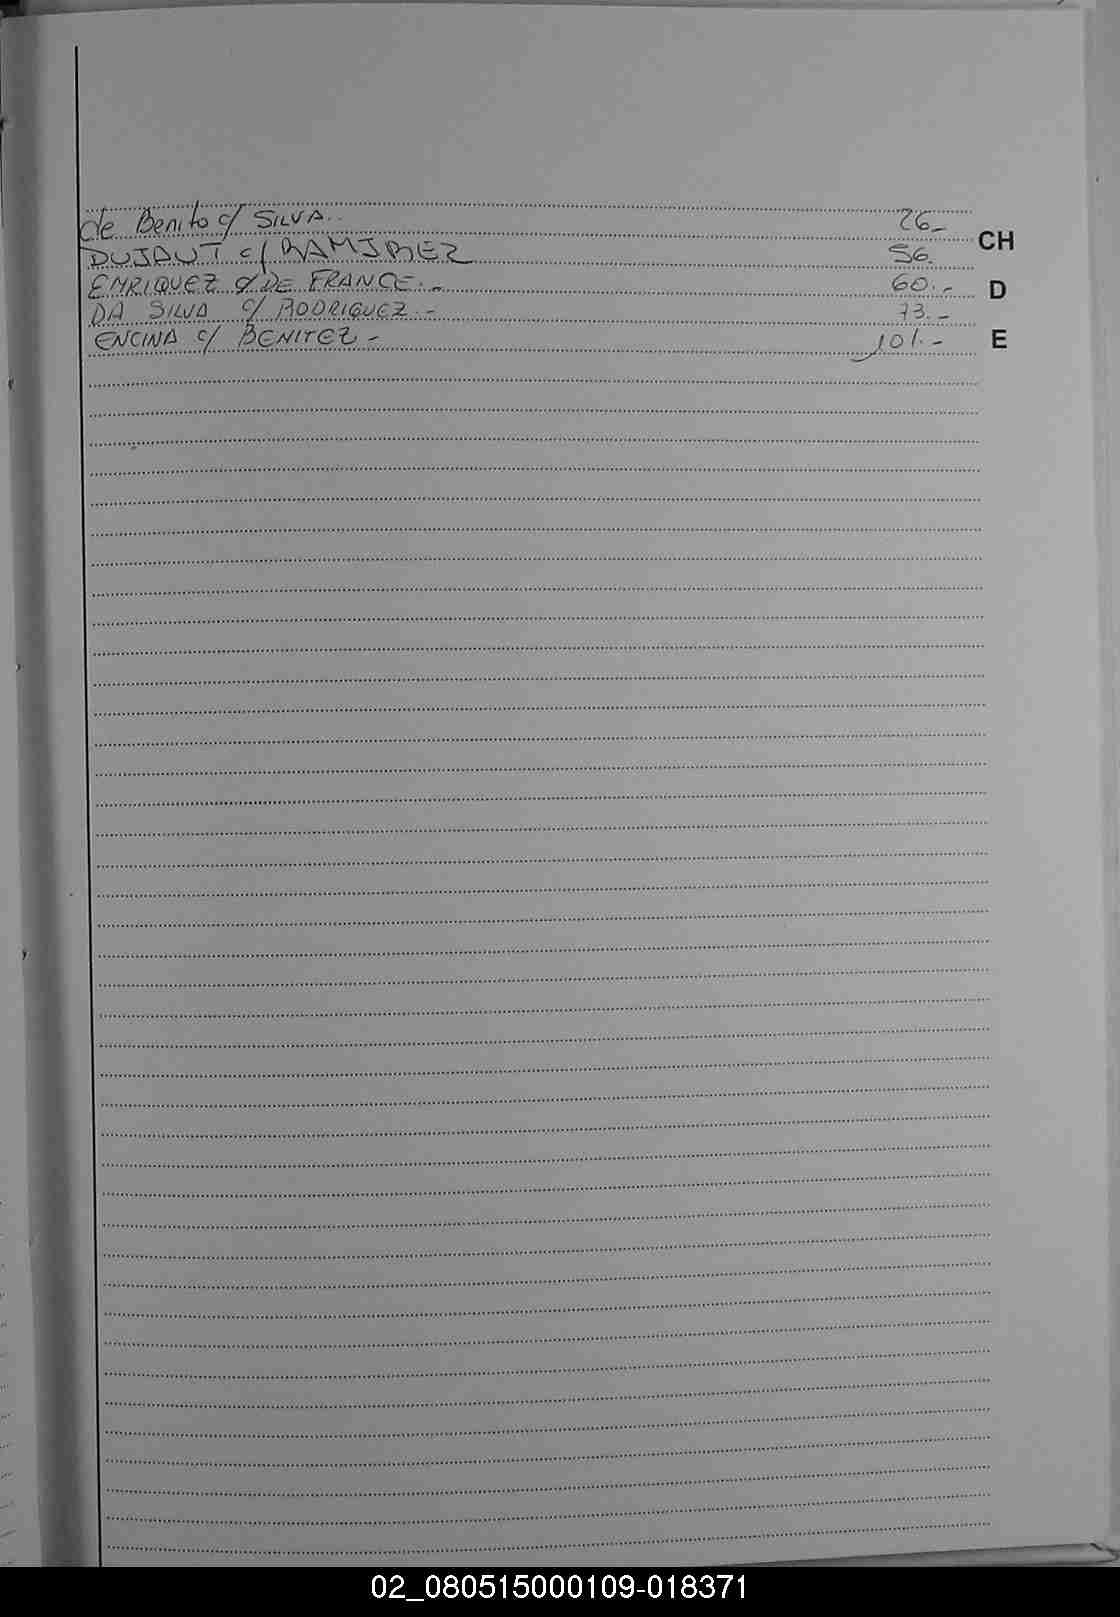 de Benito c/ SILVA.. 26.-
CH
DUJAUT c/ RAMIREZ 56.
ENRIQUEZ c/ DE FRANCE.- 60.-
D
DA SILVA c/ RODRIGUEZ.- 73.-
ENCINA c/ BENITEZ - 101.-
E
02_080515000109-018371